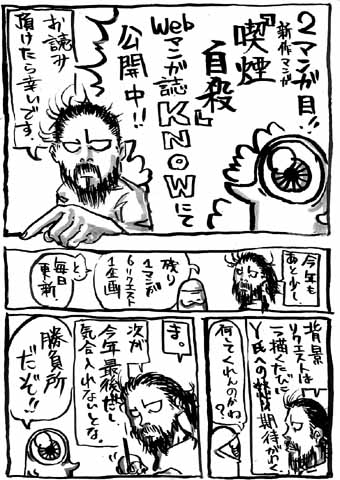 2マンガ目!!
新作マンガ
『喫煙
自殺』
Webマンガ誌KNOWにて
公開中!!
お読み
頂けたら幸いです。
今年も
あと少し。
残り
1マンガ
6リクエスト
1企画
と、
毎日
更新。
背景
リクエストは
描くたびに
Y氏への
期待が
何てくれんのかね
?
ま。
次が
今年最後だし
気合入れないとな。
勝負所
だぞ!!